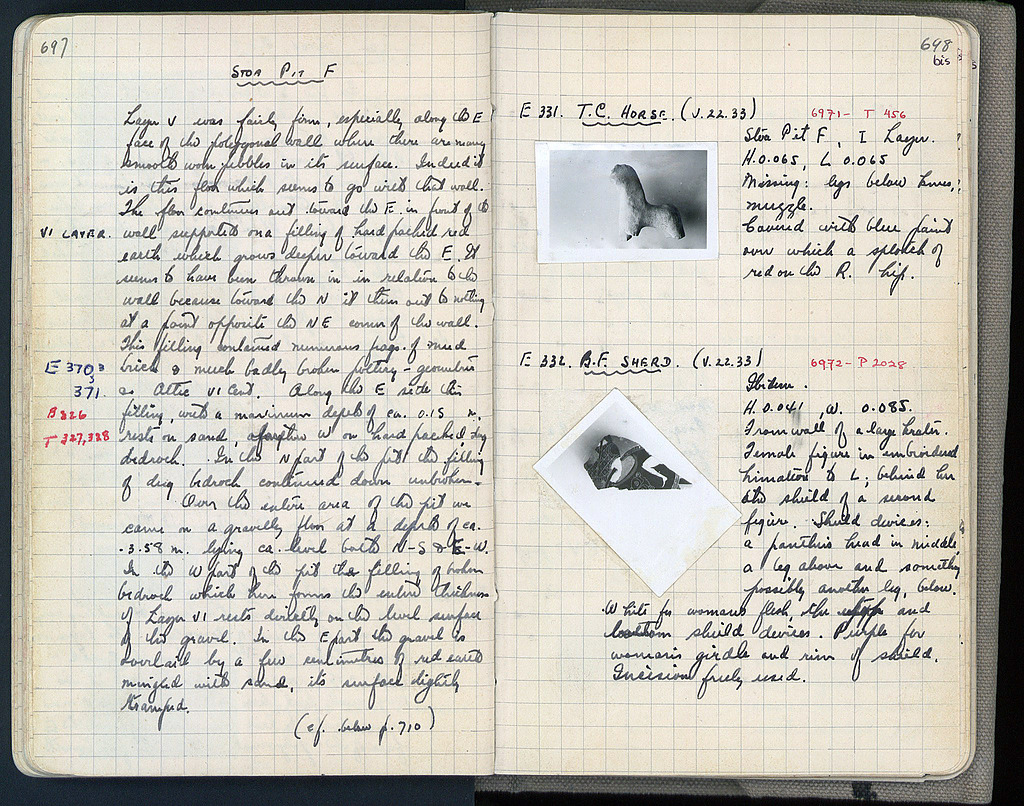 697
STOA PIT F
Layer V was fairly firm, especially along the E
face of the polygonal wall where there are many
smooth worn pebbles in its surface. Indeed it
is this floor which seems to go with that wall.
The floor continues out toward the E. in front of the
VI LAYER. wall supported on a filling of hard packed red
earth which grows deeper toward the E. It
seems to have been thrown in in relation to the
wall because toward the N it thins out to nothing
at a point opposite the NE corner of the wall.
This filling contained numerous frags. of mud
E 370 brick & much badly broken pottery - geometric
371. to Attic VI cent. Along the E side this
B 326 filling, with a maximum depth of ca. 0.15 m.
T 327,328 rests on sand, W on hard packed, dug
bedrock. In the N part of the pit the filling
of dug bedrock continued down unbroken.
Over the entire area of the pit we
came on a gravelly floor at a depth of ca.
-3.58 m. lying ca. level both N-S & E-W.
In the W part of the pit the filling of broken
bedrock which here forms the entire thickness
of Layer VI rests directly on the level surface
of the gravel. In the E part the gravel is
overlaid by a few centimetres of red earth
mingled with sand, its surface lightly
tramped.
(cf. below p. 710)
648
bis
E 331. T.C. HORSE. (V.22.33) 6971- T 456
Stoa Pit F, I Layer.
H. 0.065, L 0.065
Missing: legs below knees,
muzzle.
Covered with blue paint
over which a splotch of
red on the R. hip.
E 332. B.F. SHERD. (V.22.33) 6972- P 2028
Ibidem.
H. 0.041, W. 0.085.
From wall of a large krater.
Female figure in embroidered
himation to L; behind her
the shield of a second
figure. Shield devices:
a panther's head in middle,
a leg above and something
possibly another leg, below.
White for woman's flesh, the and
bottom shield devices. Purple for
woman's girdle and rim of shield.
Incision freely used.